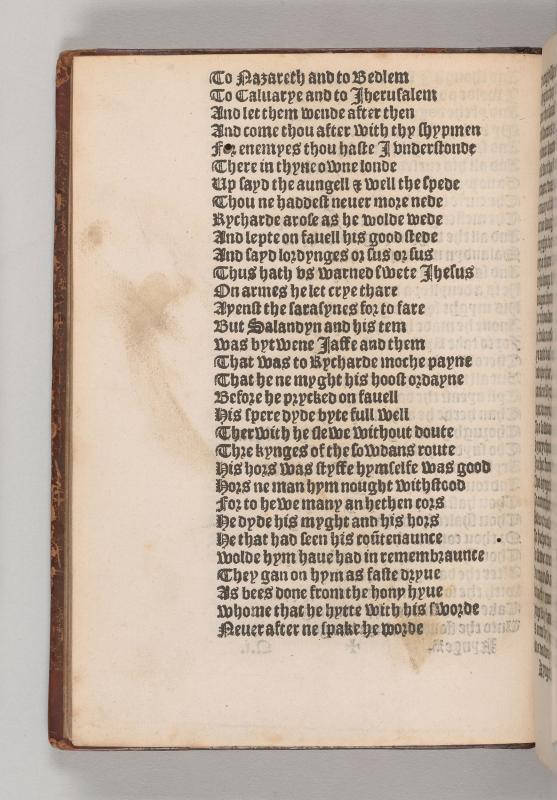 To Nazareth and to Bedlem
To Caluarye and to Jherusalem
And let them wende after then
And come thou after with thy shypmen
For enemyes thou haste J vnderstonde
There in thyne owne londe
Up sayd the aungell ⁊ well the spede
Thou ne haddest neuer more nede
Rycharde arose as he wolde wede
And lepte on fauell his good stede
And sayd lordynges or sus or sus
Thus hath vs warned swete Jhesus
On armes he let crye thare
Ayenst the sarasynes for to fare
But Salandyn and his tem
was bytwene Jaffe and them
That was to Rycharde moche payne
That he ne myght his hoost ordayne
Before he prycked on fauell
His spere dyde byte full well
Therwith he slewe without doute
Thre kynges of the sowdans route
His hors was styffe hymselfe was good
Hors ne man hym nought withstood
For to hewe many an hethen cors
He dyde his myght and his hors
He that had seen his coūtenaunce
wolde hym haue had in remembraunce
They gan on hym as faste dryue
As bees done from the hony hyue
whome that he hytte with his sworde
Neuer after ne spake he worde